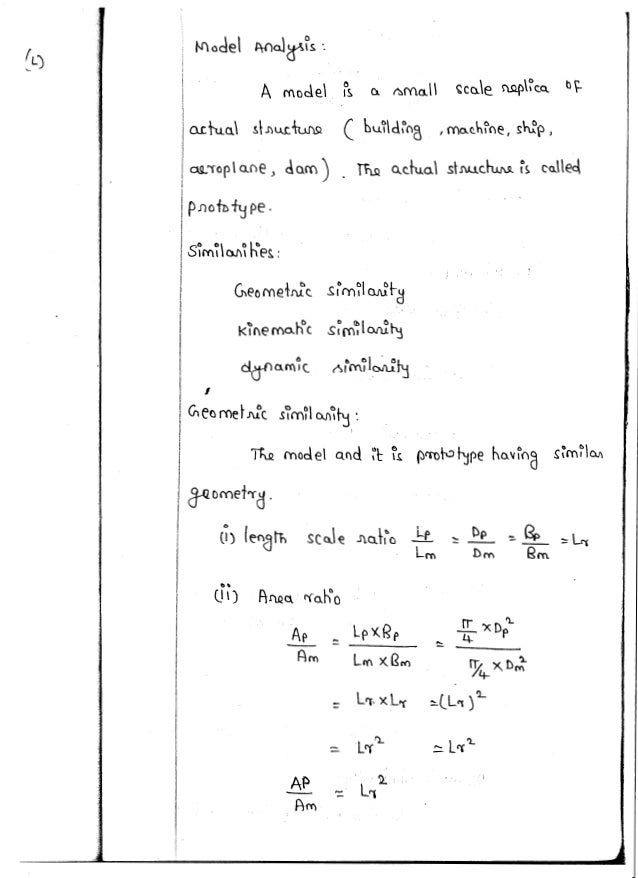 (L)
Model Analysis :
A model is a small scale replica of
actual structure ( building , machine, ship,
aeroplane, dam ) . The actual structure is called
prototype.
Similarities :
Geometric similarity
kinematic similarity
dynamic similarity
Geometric similarity :
The model and it is prototype having similar
geometry.
(i) length scale ratio Lp/Lm = Dp/Dm = Bp/Bm = Lr
(ii) Area ratio
Ap/Am = Lp×Bp / Lm×Bm = π/4 × Dp² / π/4 × Dm²
= Lr × Lr = (Lr)²
= Lr² = Lr²
AP/Am = Lr²